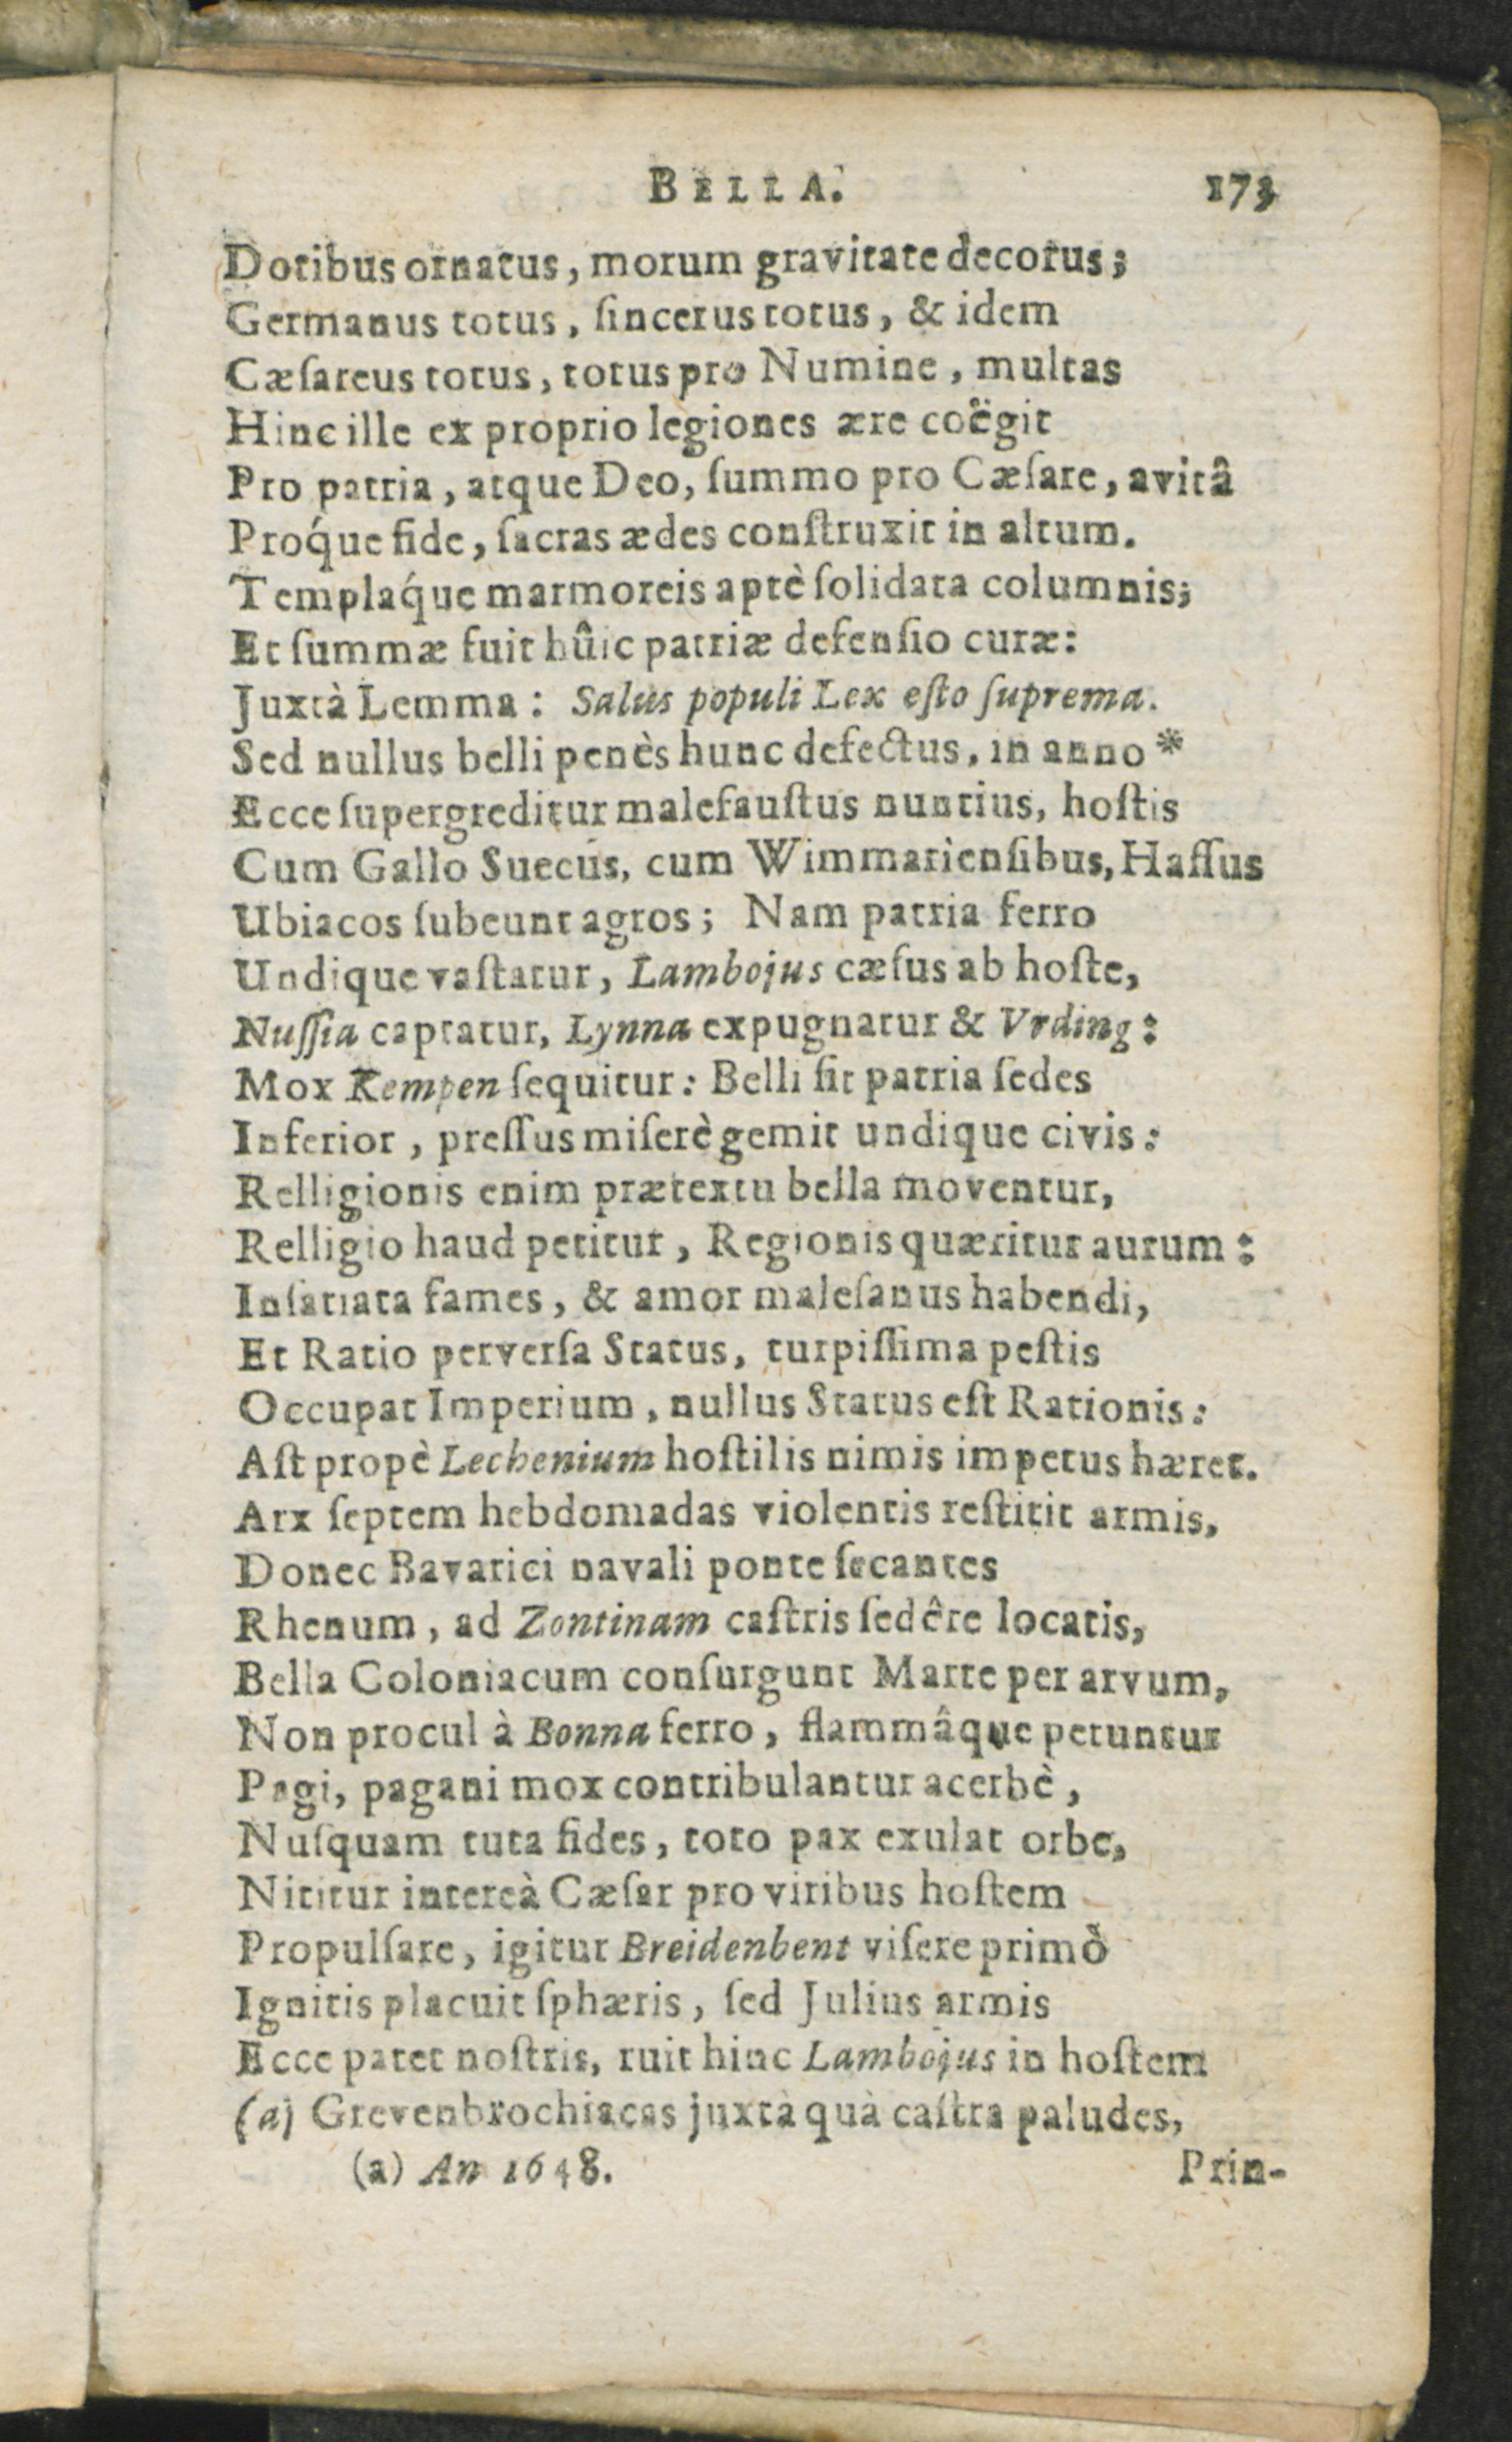 BELLA. 173
Dotibus ornatus, morum gravitate decorus;
Germanus totus, ſincerus totus, & idem
Cæſareus totus, totus pro Numine, multas
Hinc ille ex proprio legiones ære coëgit
Pro patria, atque Deo, ſummo pro Cæſare, avitâ
Proq́ue fide, ſacras ædes conſtruxit in altum.
Templaq́ue marmoreis aptè ſolidata columnis;
Et ſummæ fuit hûic patriæ defenſio curæ:
Juxtà Lemma: Salus populi Lex eſto ſuprema.
Sed nullus belli penès hunc defectus, in anno *
Ecce ſupergreditur malefauſtus nuntius, hoſtis
Cum Gallo Suecus, cum Wimmarienſibus, Haſſus
Ubiacos ſubeunt agros; Nam patria ferro
Undique vaſtatur, Lambojus cæſus ab hoſte,
Nuſſia captatur, Lynna expugnatur & Vrding:
Mox Kempen ſequitur: Belli fit patria ſedes
Inferior, preſſus miſerè gemit undique civis:
Relligionis enim prætextu bella moventur,
Relligio haud petitur, Regionis quæritur aurum:
Inſatiata fames, & amor maleſanus habendi,
Et Ratio perverſa Status, turpiſſima peſtis
Occupat Imperium, nullus Status eſt Rationis:
Aſt propè Lechenium hoſtilis nimis impetus hæret.
Arx ſeptem hebdomadas violentis reſtitit armis,
Donec Bavarici navali ponte ſecantes
Rhenum, ad Zontinam caſtris ſedêre locatis,
Bella Coloniacum conſurgunt Marte per arvum,
Non procul à Bonna ferro, flammâque petuntur
Pagi, pagani mox contribulantur acerbè,
Nuſquam tuta fides, toto pax exulat orbe,
Nititur intereà Cæſar pro viribus hoſtem
Propulſare, igitur Breidenbent viſere primò
Ignitis placuit ſphæris, ſed Julius armis
Ecce patet noſtris, ruit hinc Lambojus in hoſtem
(a) Grevenbrochiacas juxtà quà caſtra paludes,
(a) An 1648. Prin-